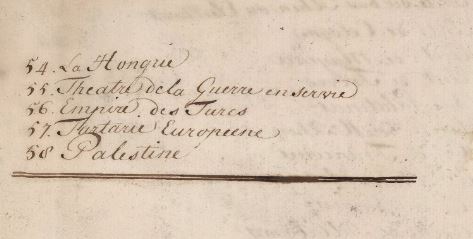 54. La Hongrie
55. Theatre dela Guerre en servie
56. Empire des Turcs
57. Tartarie Européene
58 Palestine